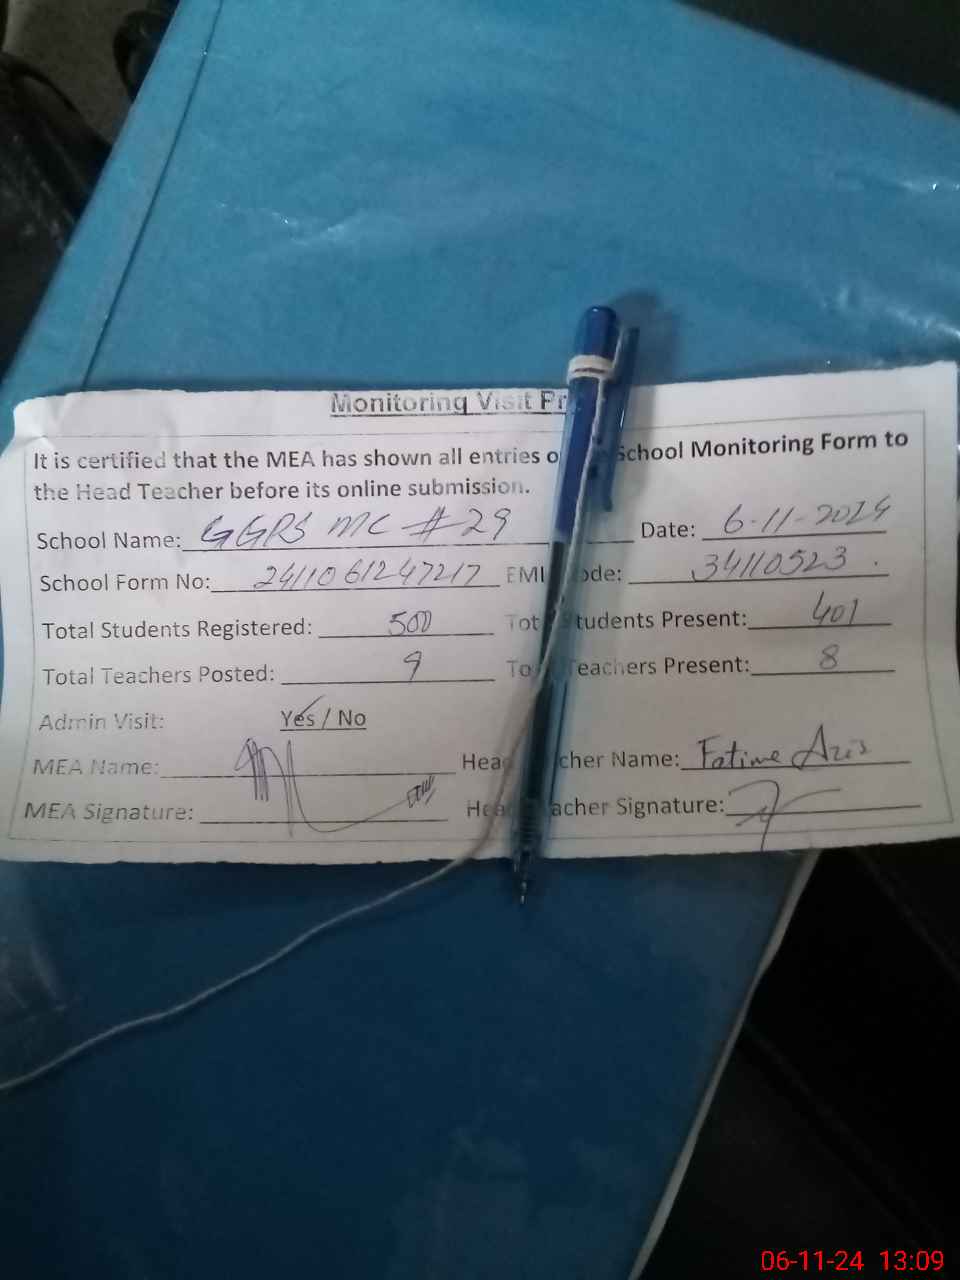 Monitoring Visit Pr
It is certified that the MEA has shown all entries o School Monitoring Form to
the Head Teacher before its online submission.
School Name: GGPS MC # 29 Date: 6-11-2024
School Form No: 241106124 7217 EMI ode: 34110523
Total Students Registered: 500 Tot Students Present: 401
Total Teachers Posted: 9 To Teachers Present: 8
Admin Visit: Yes / No
MEA Name: Hea cher Name: Fatime Azis
MEA Signature: Hea acher Signature:
06-11-24 13:09